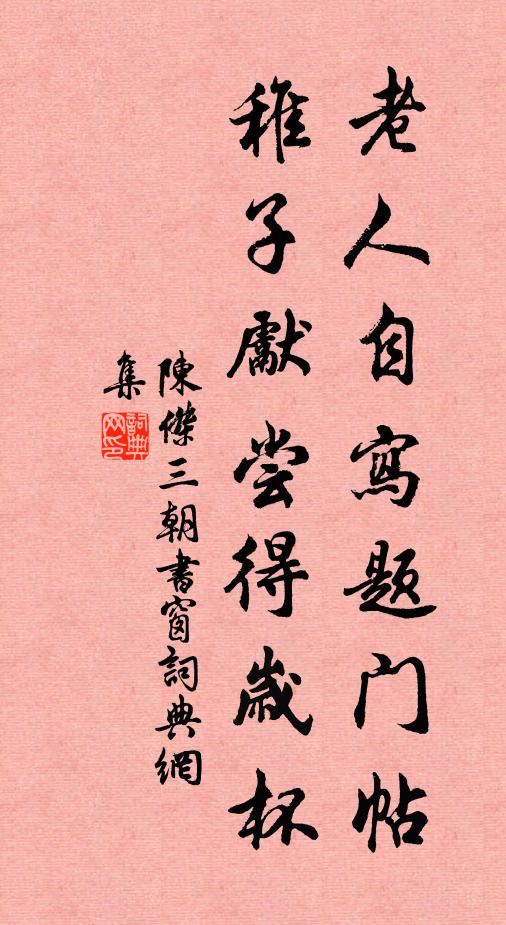 老人自寫题门帖
稚子獻尝得歲杯
陳傑三朝書窗詞典網
集
詞典網印